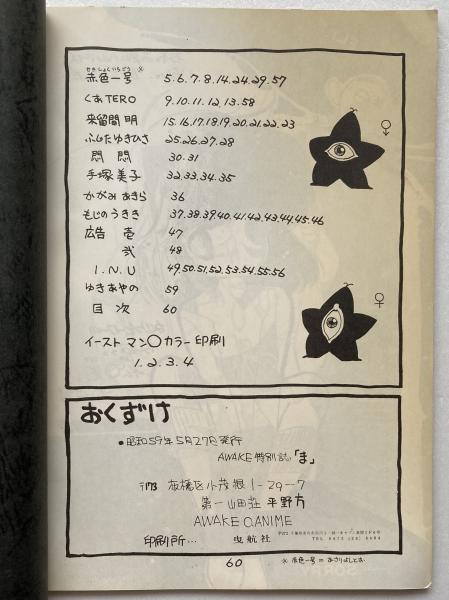 せきしょくいちごう
赤色一号 ※ 5.6.7.8.14.24.29.57
くあTERO 9.10.11.12.13.58
来留間 明 15.16.17.18.19.20.21.22.23
ふじたゆきひさ 25.26.27.28
悶 悶 30.31
手塚 美子 32.33.34.35
かがみ あきら 36
もじのうきき 37.38.39.40.41.42.43.44.45.46
広告 壱 47
弐 48
I.N.U 49.50.51.52.53.54.55.56
ゆきあやの 59
目 次 60
イースト マン〇カラー 印刷
1.2.3.4
♂
♀
おくずけ
• 昭和59年5月27日発行
AWAKE 特別誌「ま」
〒173 板橋区小茂根1-29-7
第一山田荘 平野方
AWAKE O.ANIME
印刷所… 曳航社
60
※ 赤色一号 = あさりよしとお